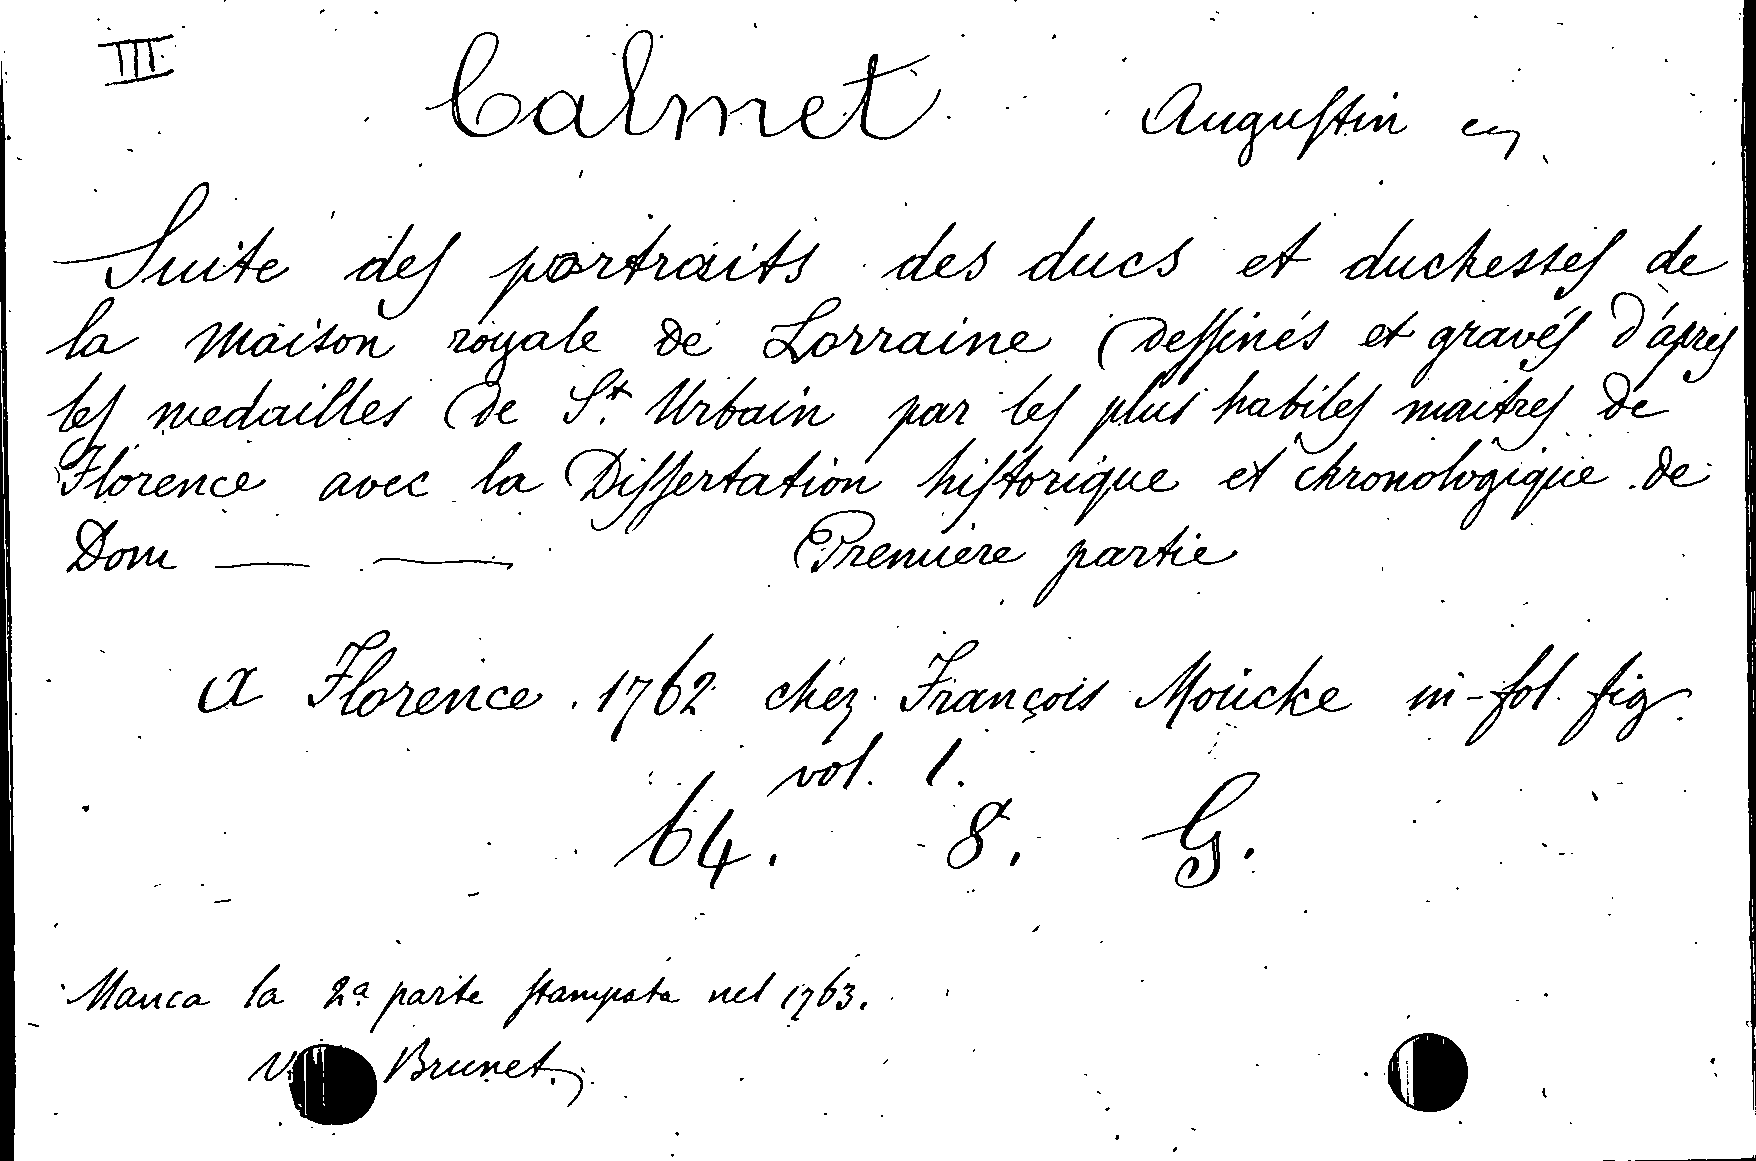 III
Calmet Augustin
Suite des portraits des ducs et duchesses de
la Maison royale de Lorraine dessinés et gravés d'après
les medailles de St. Urbain par les plus habiles maitres de
Florence avec la Dissertation historique et chronologique de
Dom — — Premiere partie
A Florence 1762 chez François Moücke in-fol. fig.
vol. 1.
64. 8. G.
Manca la 2a parte stampata nel 1763.
Brunet.